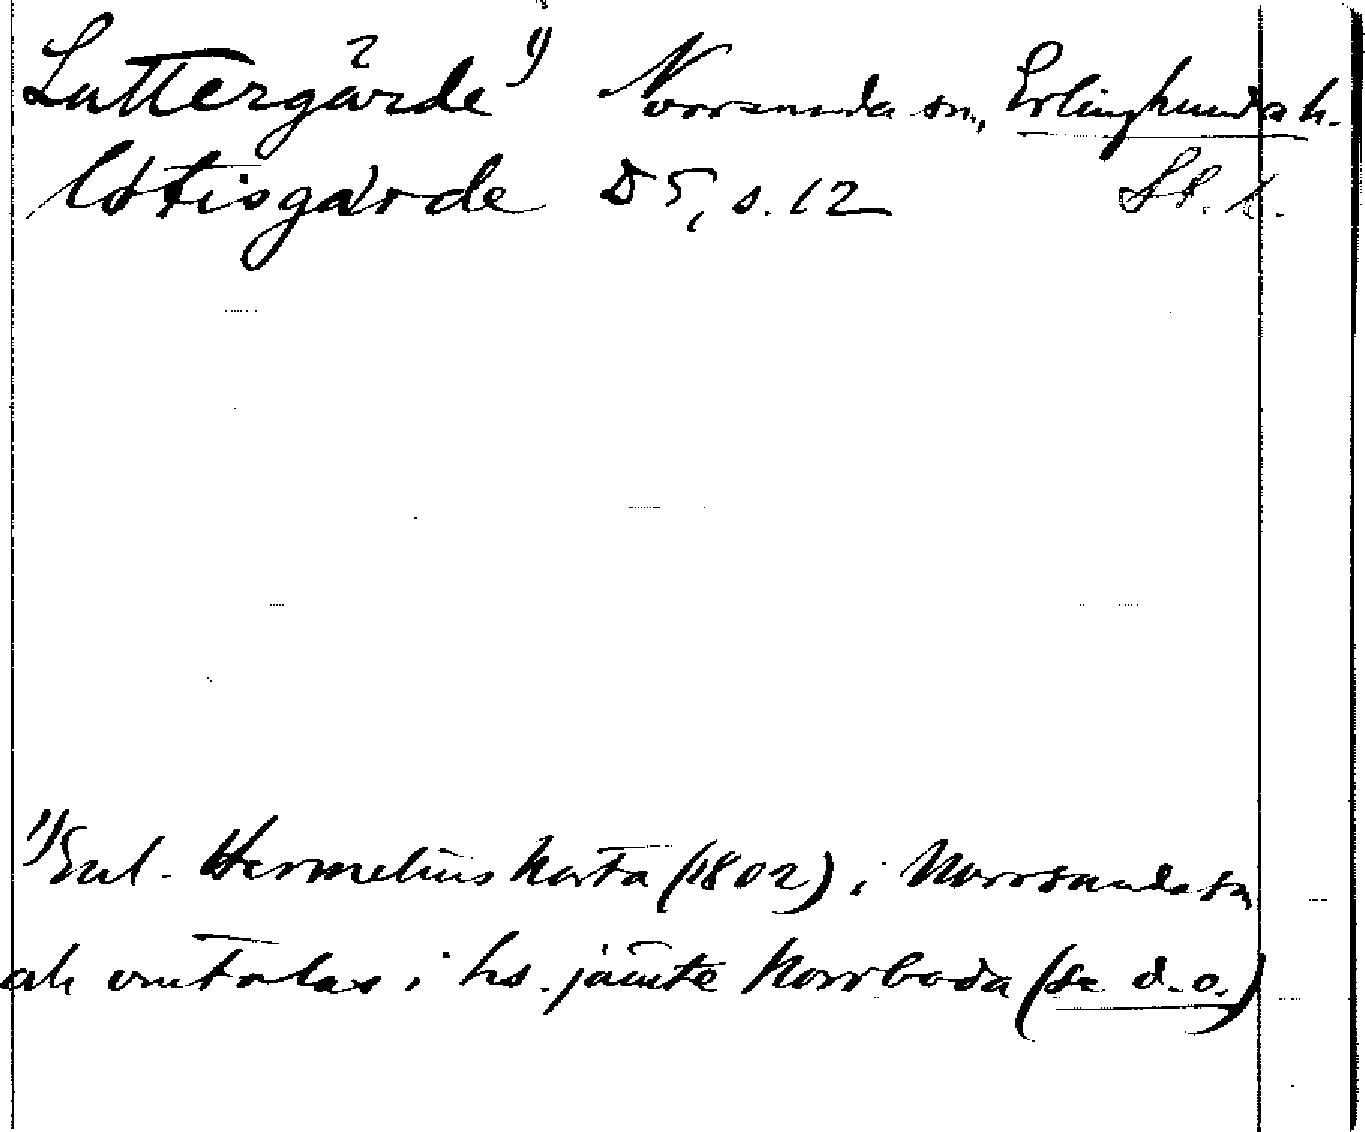 Luttergärde 1) Norrsunda sn, Erlinghunda h.
Ottisgärde D 5, s. 12 St. l.
1) Enl. Hermelins karta (1802), i Norrsunda sn
ch omtalas i hs. jämte Norrboda (se d.o.)